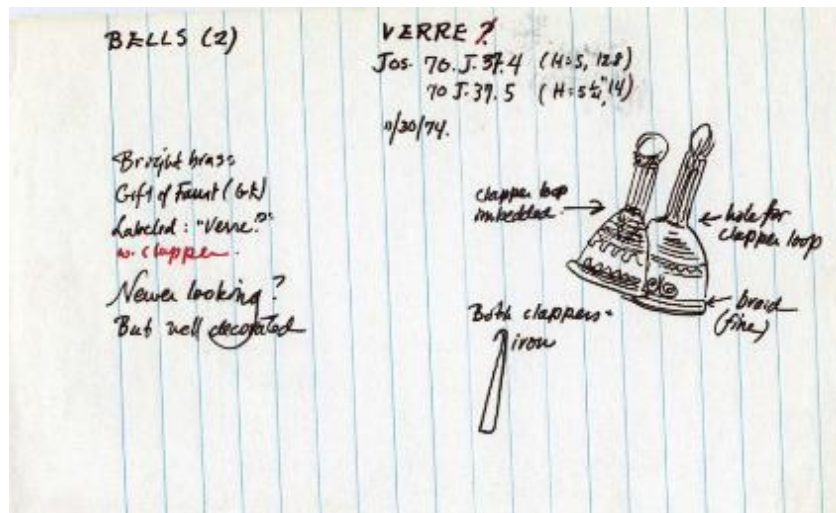 BELLS (2)
VERRE ?
Jos. 70. J. 37.4 (H: 5, 12.8)
70 J. 37. 5 (H: 5 ¼", 14)
11/30/74.
Bright brass
Gift of Faunt (G.K)
Labeled: "Verre?"
w. clapper.
Newer looking?
But well decorated
clapper loop
imbedded.
hole for
clapper loop
Both clappers-
iron
braid
(fine)